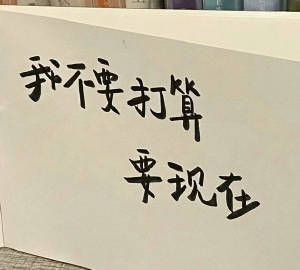 我不要打算
要现在